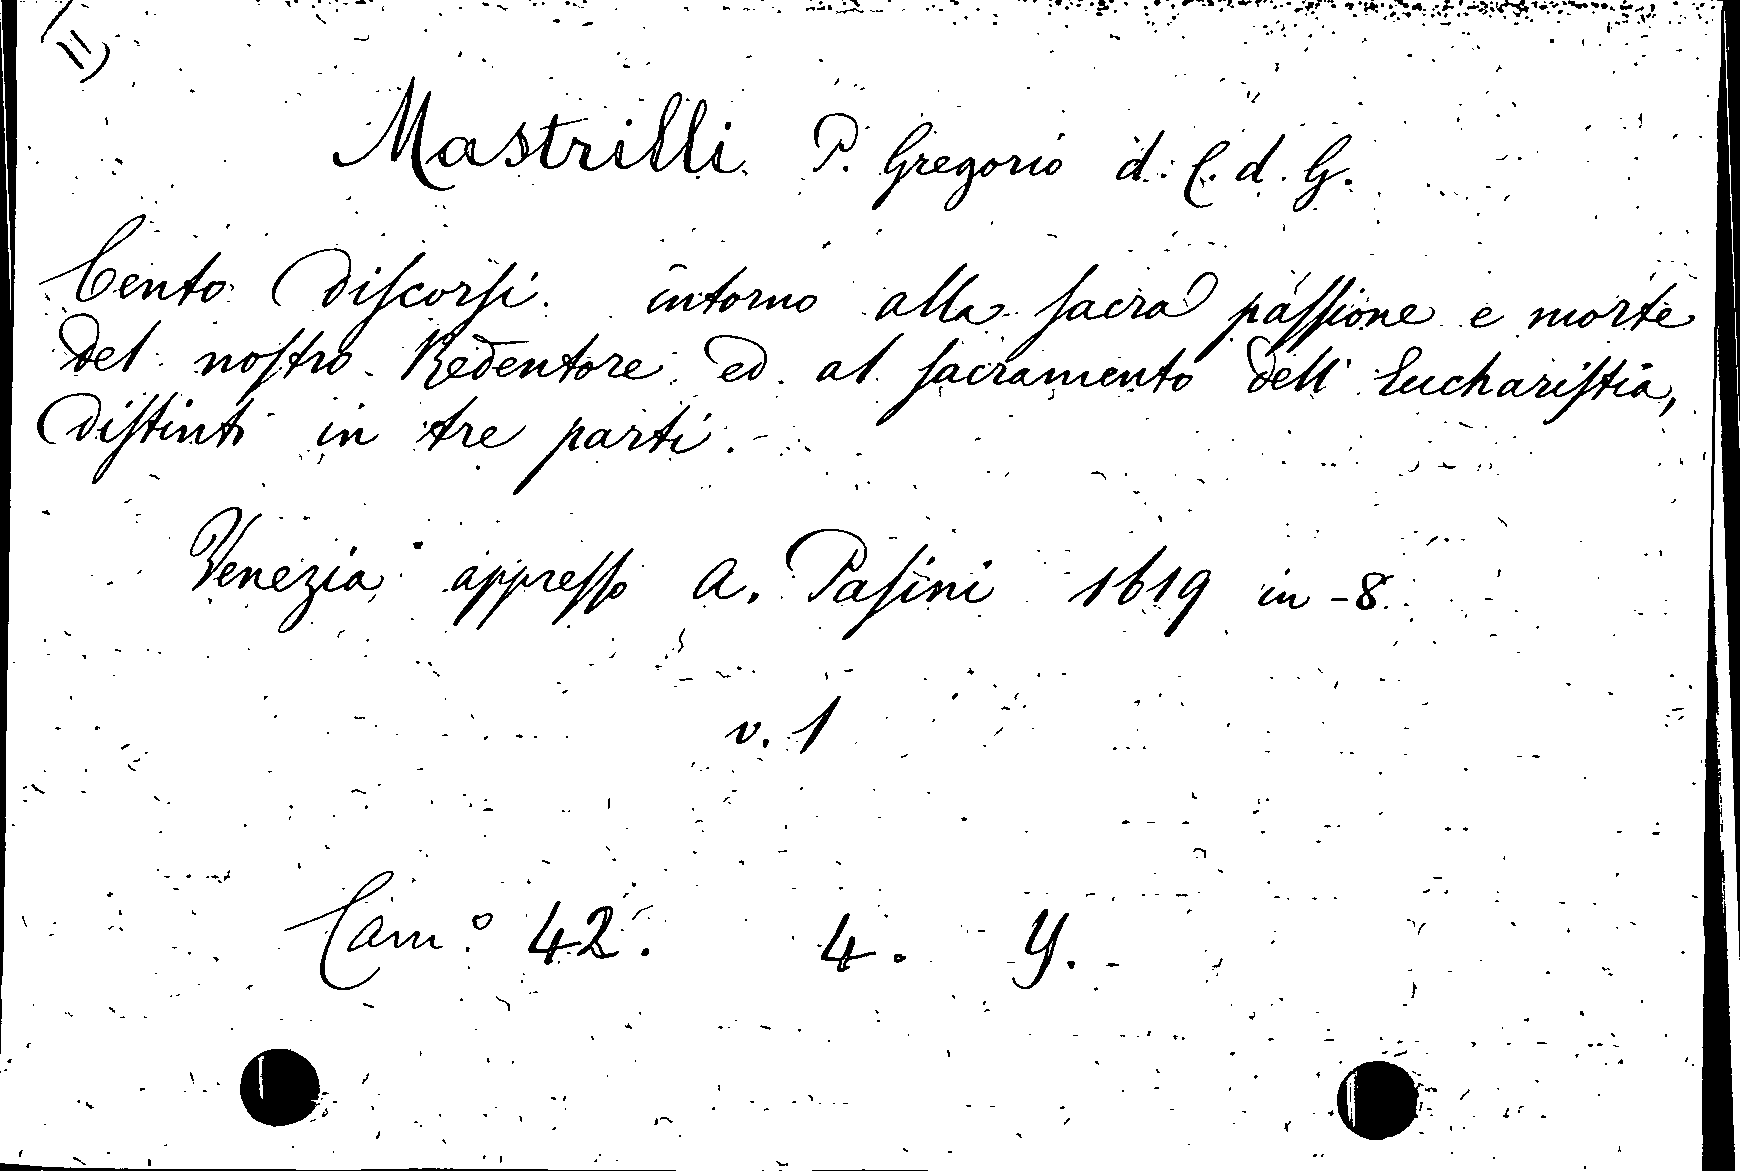 11)
Mastrilli P. Gregorio d. C. d. G.
Cento Discorsi. intorno alla sacra passione e morte
del nostro Redentore ed al sacramento dell' Eucharistia,
Distinti in tre parti.
Venezia appresso A. Pasini 1619 in-8
v. 1
Cam.o 42. 4. Y.